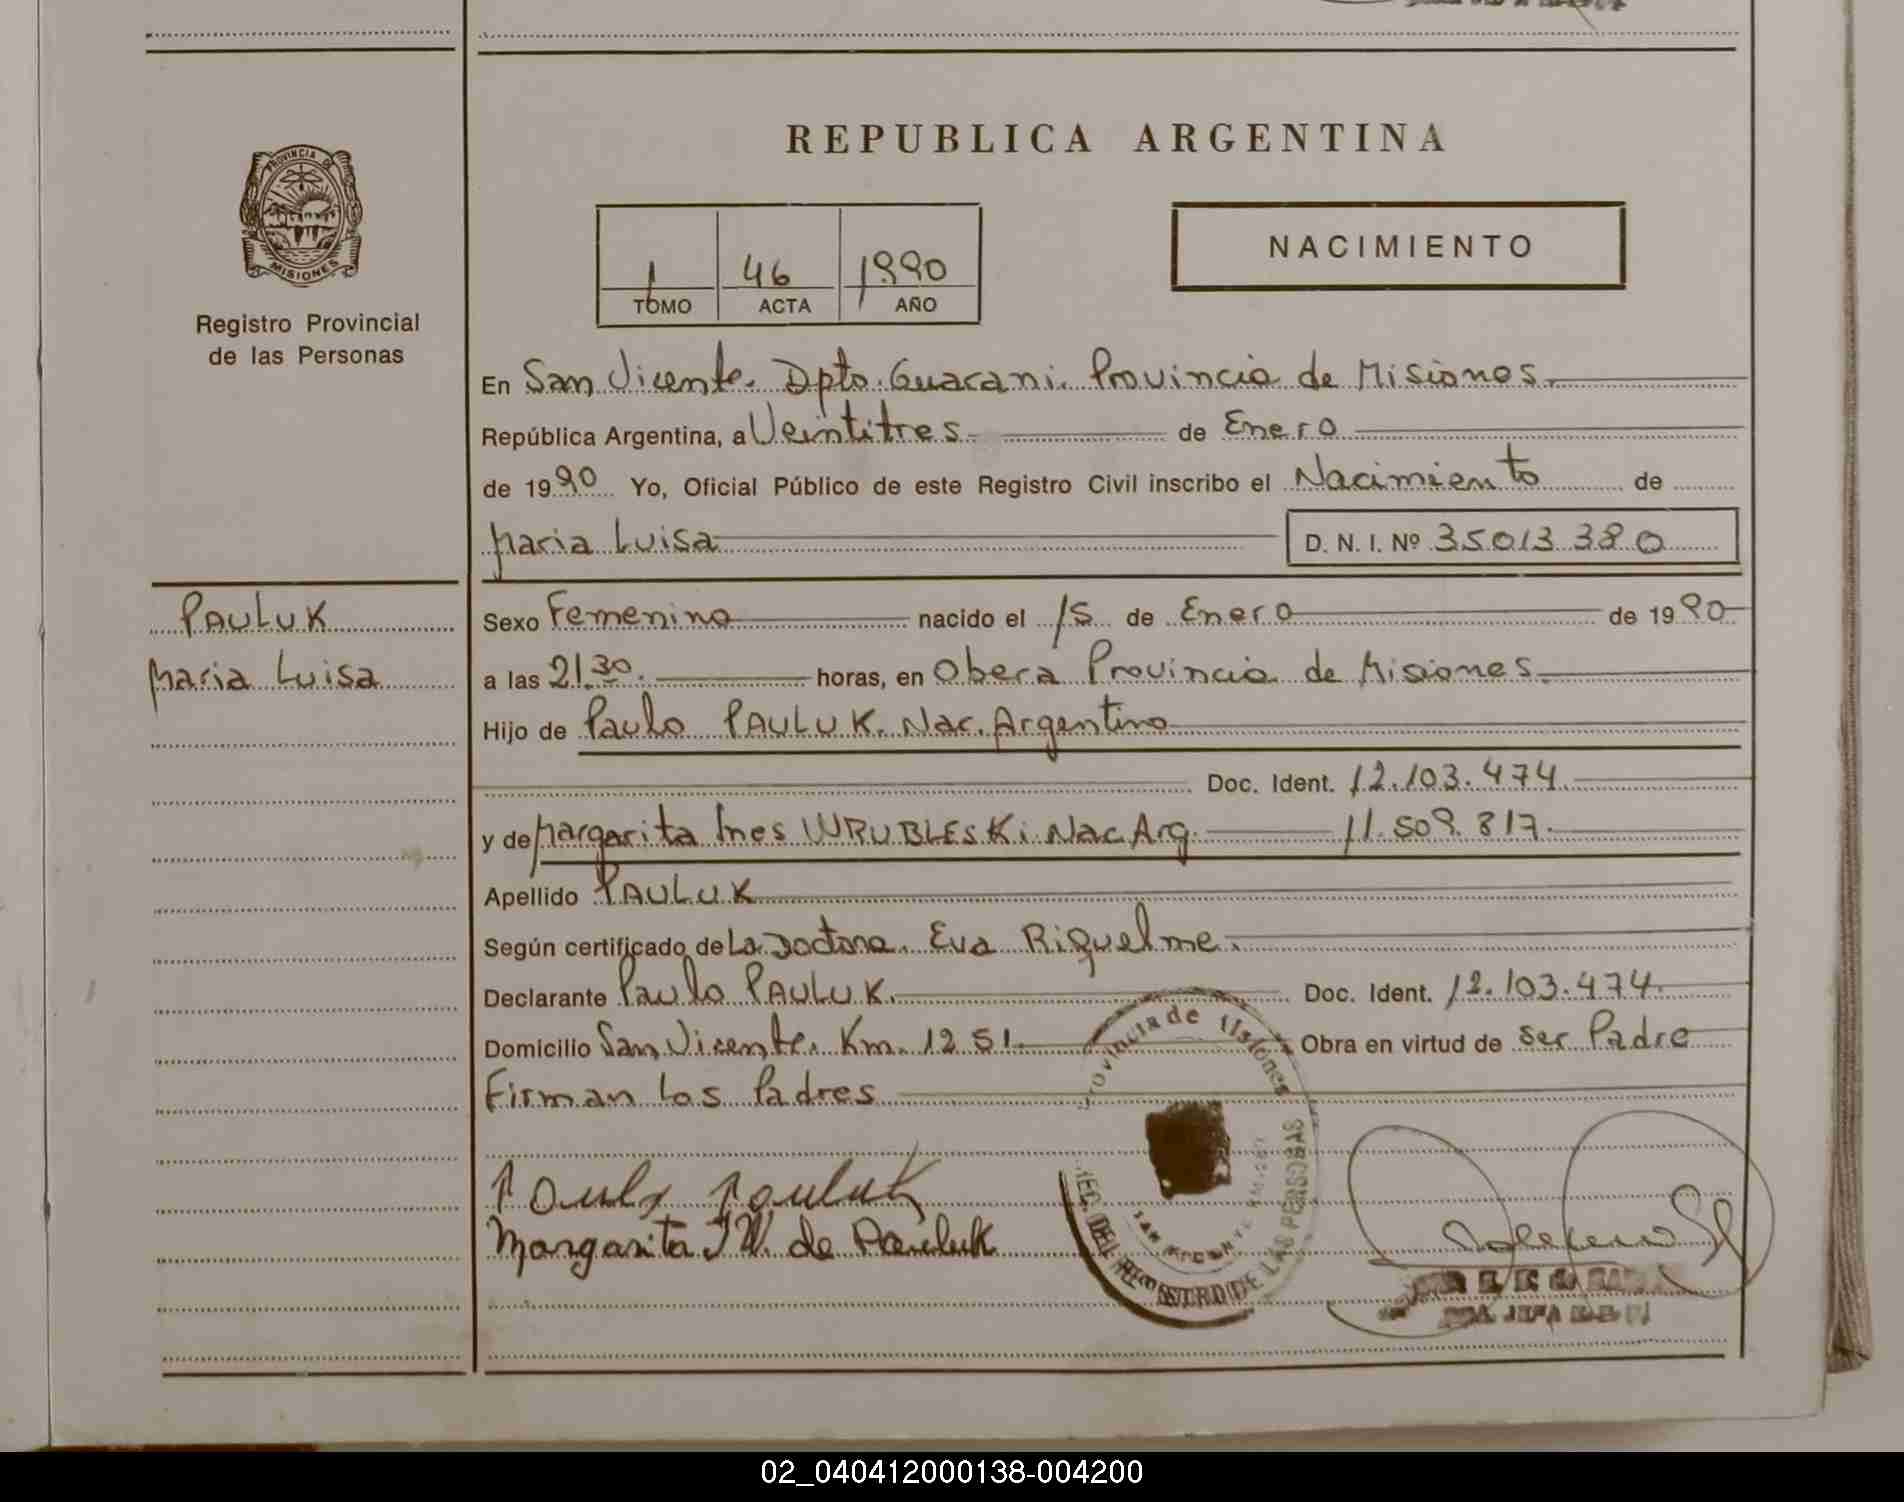 REPUBLICA ARGENTINA
PROVINCIA DE
MISIONES
Registro Provincial
de las Personas
1 46 1990
TOMO ACTA AÑO
NACIMIENTO
En San Vicente. Dpto. Guarani. Provincia de Misiones.
República Argentina, a Veintitres de Enero
de 1990 Yo, Oficial Público de este Registro Civil inscribo el Nacimiento de
Maria Luisa D. N. I. Nº 35013380
PAULUK
Maria Luisa
Sexo Femenino nacido el 15 de Enero de 1990
a las 21.30. horas, en Obera Provincia de Misiones.
Hijo de Paulo PAULUK. Nac. Argentino
Doc. Ident. 12.103.474.
y de Margarita Ines WRUBLESKi Nac. Arg. 11.509.817.
Apellido PAULUK
Según certificado de La Doctora. Eva Riquelme.
Declarante Paulo PAULUK. Doc. Ident. 12.103.474.
Domicilio San Vicente. Km. 1251. Obra en virtud de Ser Padre
Firman Los Padres
Paulo Pauluk
Margarita I W. de Pauluk
Provincia de Misiones
DEL REGISTRO DE LAS PERSONAS
SAN VICENTE
02_040412000138-004200